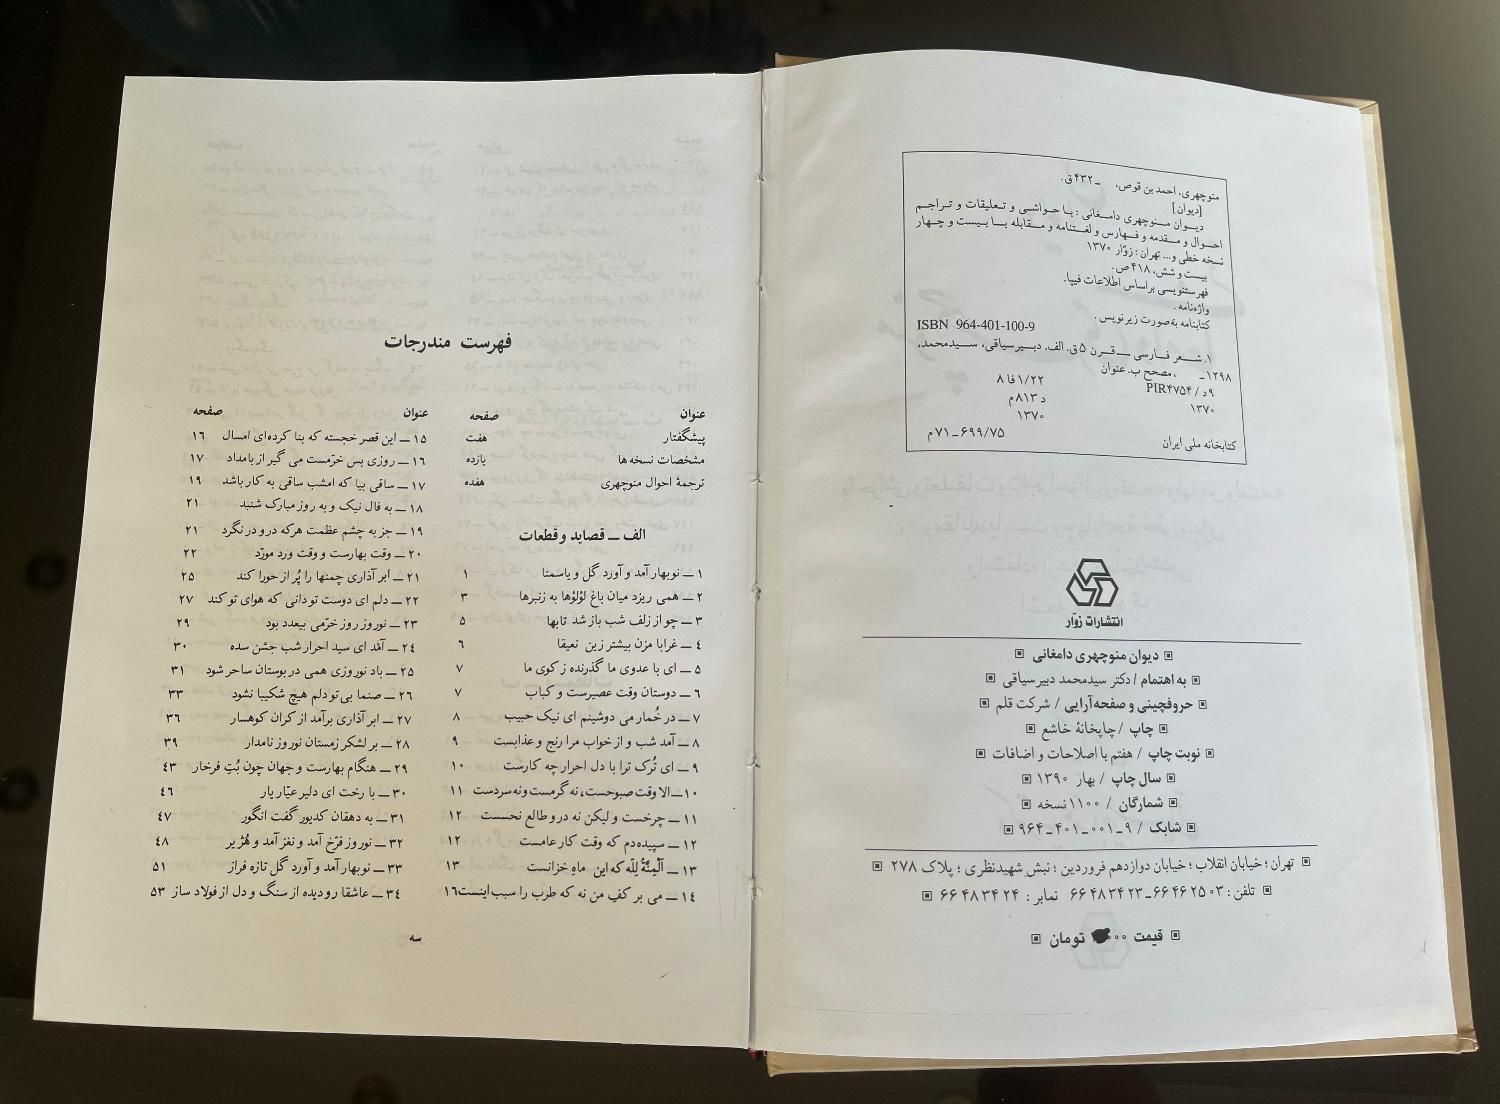 منوچهری، احمد بن قوص، ـ ۴۳۲ ق.
[دیوان]
دیـوان مـنوچهری دامـغانی : بـا حـواشی و تـعلیقات و تـراجـم
احـوال و مـقدمه و فـهارس و لغـتنامه و مـقابله بـا بیـست و چـهار
نسخه خطی و... تهران : زوّار ۱۳۷۰
بیست و شش، ۴۱۸ ص.
فهرستنویسی براساس اطلاعات فیپا.
واژه‌نامه.
کتابنامه به‌صورت زیرنویس.
ISBN 964-401-100-9
۱. شـعر فـارسی ــ قـرن ۵ق. الف. دبـیرسیاقی، سیـدمحمد،
۱۲۹۸ـ ، مصحح ب. عنوان
۹د / PIR۴۷۵۴ ۱/۲۲ فا ۸
۱۳۷۰ د ۸۱۳ م
۱۳۷۰
کتابخانه ملی ایران ۶۹۹/۷۵ ـ ۷۱ م
انتشارات زوّار
دیوان منوچهری دامغانی
به اهتمام / دکتر سیدمحمد دبیرسیاقی
حروفچینی و صفحه‌آرایی / شرکت قلم
چاپ / چاپخانهٔ خاشع
نوبت چاپ / هفتم با اصلاحات و اضافات
سال چاپ / بهار ۱۳۹۰
شمارگان / ۱۱۰۰ نسخه
شابک / ۹ـ۰۰۱ـ۴۰۱ـ۹۶۴
تهران ؛ خیابان انقلاب ؛ خیابان دوازدهم فروردین ؛ نبش شهیدنظری ؛ پلاک ۲۷۸
تلفن : ۰۳ ۲۵ ۴۶ ۶۶ ـ ۲۳ ۳۴ ۴۸ ۶۶ نمابر : ۲۴ ۳۴ ۴۸ ۶۶
قیمت تومان
فهرست مندرجات
عنوان صفحه
پیشگفتار هفت
مشخصات نسخه‌ها یازده
ترجمهٔ احوال منوچهری هفده
الف ــ قصاید و قطعات
۱ ــ نوبهار آمد و آورد گل و یاسمنا ۱
۲ ــ همی ریزد میان باغ لؤلؤها به زنبرها ۳
۳ ــ چو از زلف شب باز شد تابها ۵
۴ ــ غرابا مزن بیشتر زین نعیقا ۶
۵ ــ ای با عدوی ما گذرنده ز کوی ما ۷
۶ ــ دوستان وقت عصیرست و کباب ۷
۷ ــ در خُمار می دوشینم ای نیک حبیب ۸
۸ ــ آمد شب و از خواب مرا رنج و عذابست ۹
۹ ــ ای تُرک ترا با دل احرار چه کارست ۱۰
۱۰ ــ الا وقت صبوحست، نه گرمست و نه سردست ۱۱
۱۱ ــ چرخست و لیکن نه درو طالع نحسست ۱۲
۱۲ ــ سپیده‌دم که وقت کار عامست ۱۲
۱۳ ــ اَلْمِنَّةُ لِلّٰه که این ماهِ خزانست ۱۳
۱۴ ــ می بر کفِ من نه که طرب را سبب اینست ۱۶
عنوان صفحه
۱۵ ــ این قصر خجسته که بنا کرده‌ای امسال ۱۶
۱۶ ــ روزی بس خرّمست می گیر از بامداد ۱۷
۱۷ ــ ساقی بیا که امشب ساقی به کار باشد ۱۹
۱۸ ــ به فال نیک و به روز مبارک شنبد ۲۱
۱۹ ــ جز به چشم عظمت هرکه درو در نگرد ۲۱
۲۰ ــ وقت بهارست و وقت ورد مورّد ۲۲
۲۱ ــ ابر آذاری چمنها را پُر از حورا کند ۲۵
۲۲ ــ دلم ای دوست تو دانی که هوای تو کند ۲۷
۲۳ ــ نوروز روز خرّمی بیعدد بود ۲۹
۲۴ ــ آمد ای سید احرار شب جشن سده ۳۰
۲۵ ــ باد نوروزی همی در بوستان ساحر شود ۳۱
۲۶ ــ صنما بی‌تو دلم هیچ شکیبا نشود ۳۳
۲۷ ــ ابر آذاری برآمد از کران کوهسار ۳۶
۲۸ ــ بر لشکر زمستان نوروز نامدار ۳۹
۲۹ ــ هنگام بهارست و جهان چون بُتِ فرخار ۴۳
۳۰ ــ با رخت ای دلبر عیّار یار ۴۶
۳۱ ــ به دهقان کدیور گفت انگور ۴۷
۳۲ ــ نوروز فرّخ آمد و نغز آمد و هُژیر ۴۸
۳۳ ــ نوبهار آمد و آورد گل تازه فراز ۵۱
۳۴ ــ عاشقا رو دیده از سنگ و دل از فولاد ساز ۵۳
سه